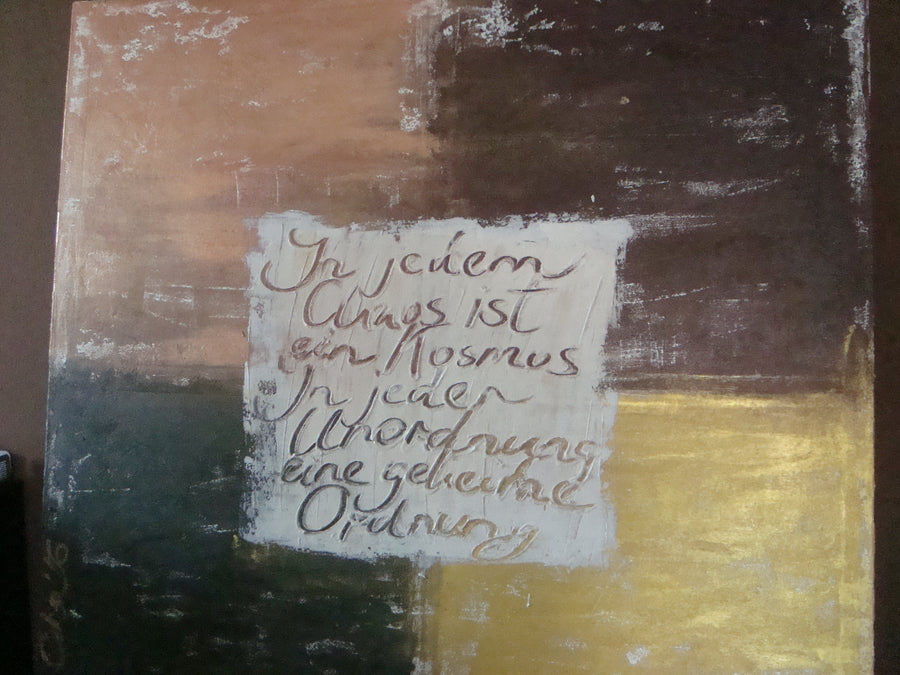 In jedem
Chaos ist
ein Kosmos
In jeder
Unordnung
eine geheime
Ordnung